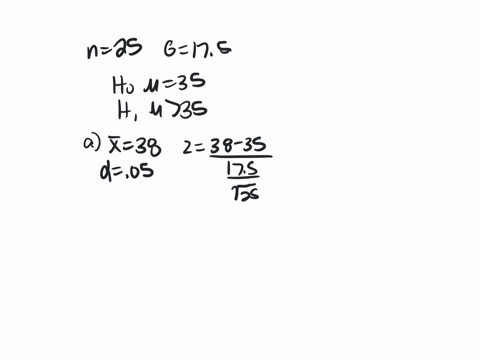 n=25 σ=17.5
H₀ μ=35
H₁ μ>35
a) x̄=38 z=38-35
α=.05 17.5
√25